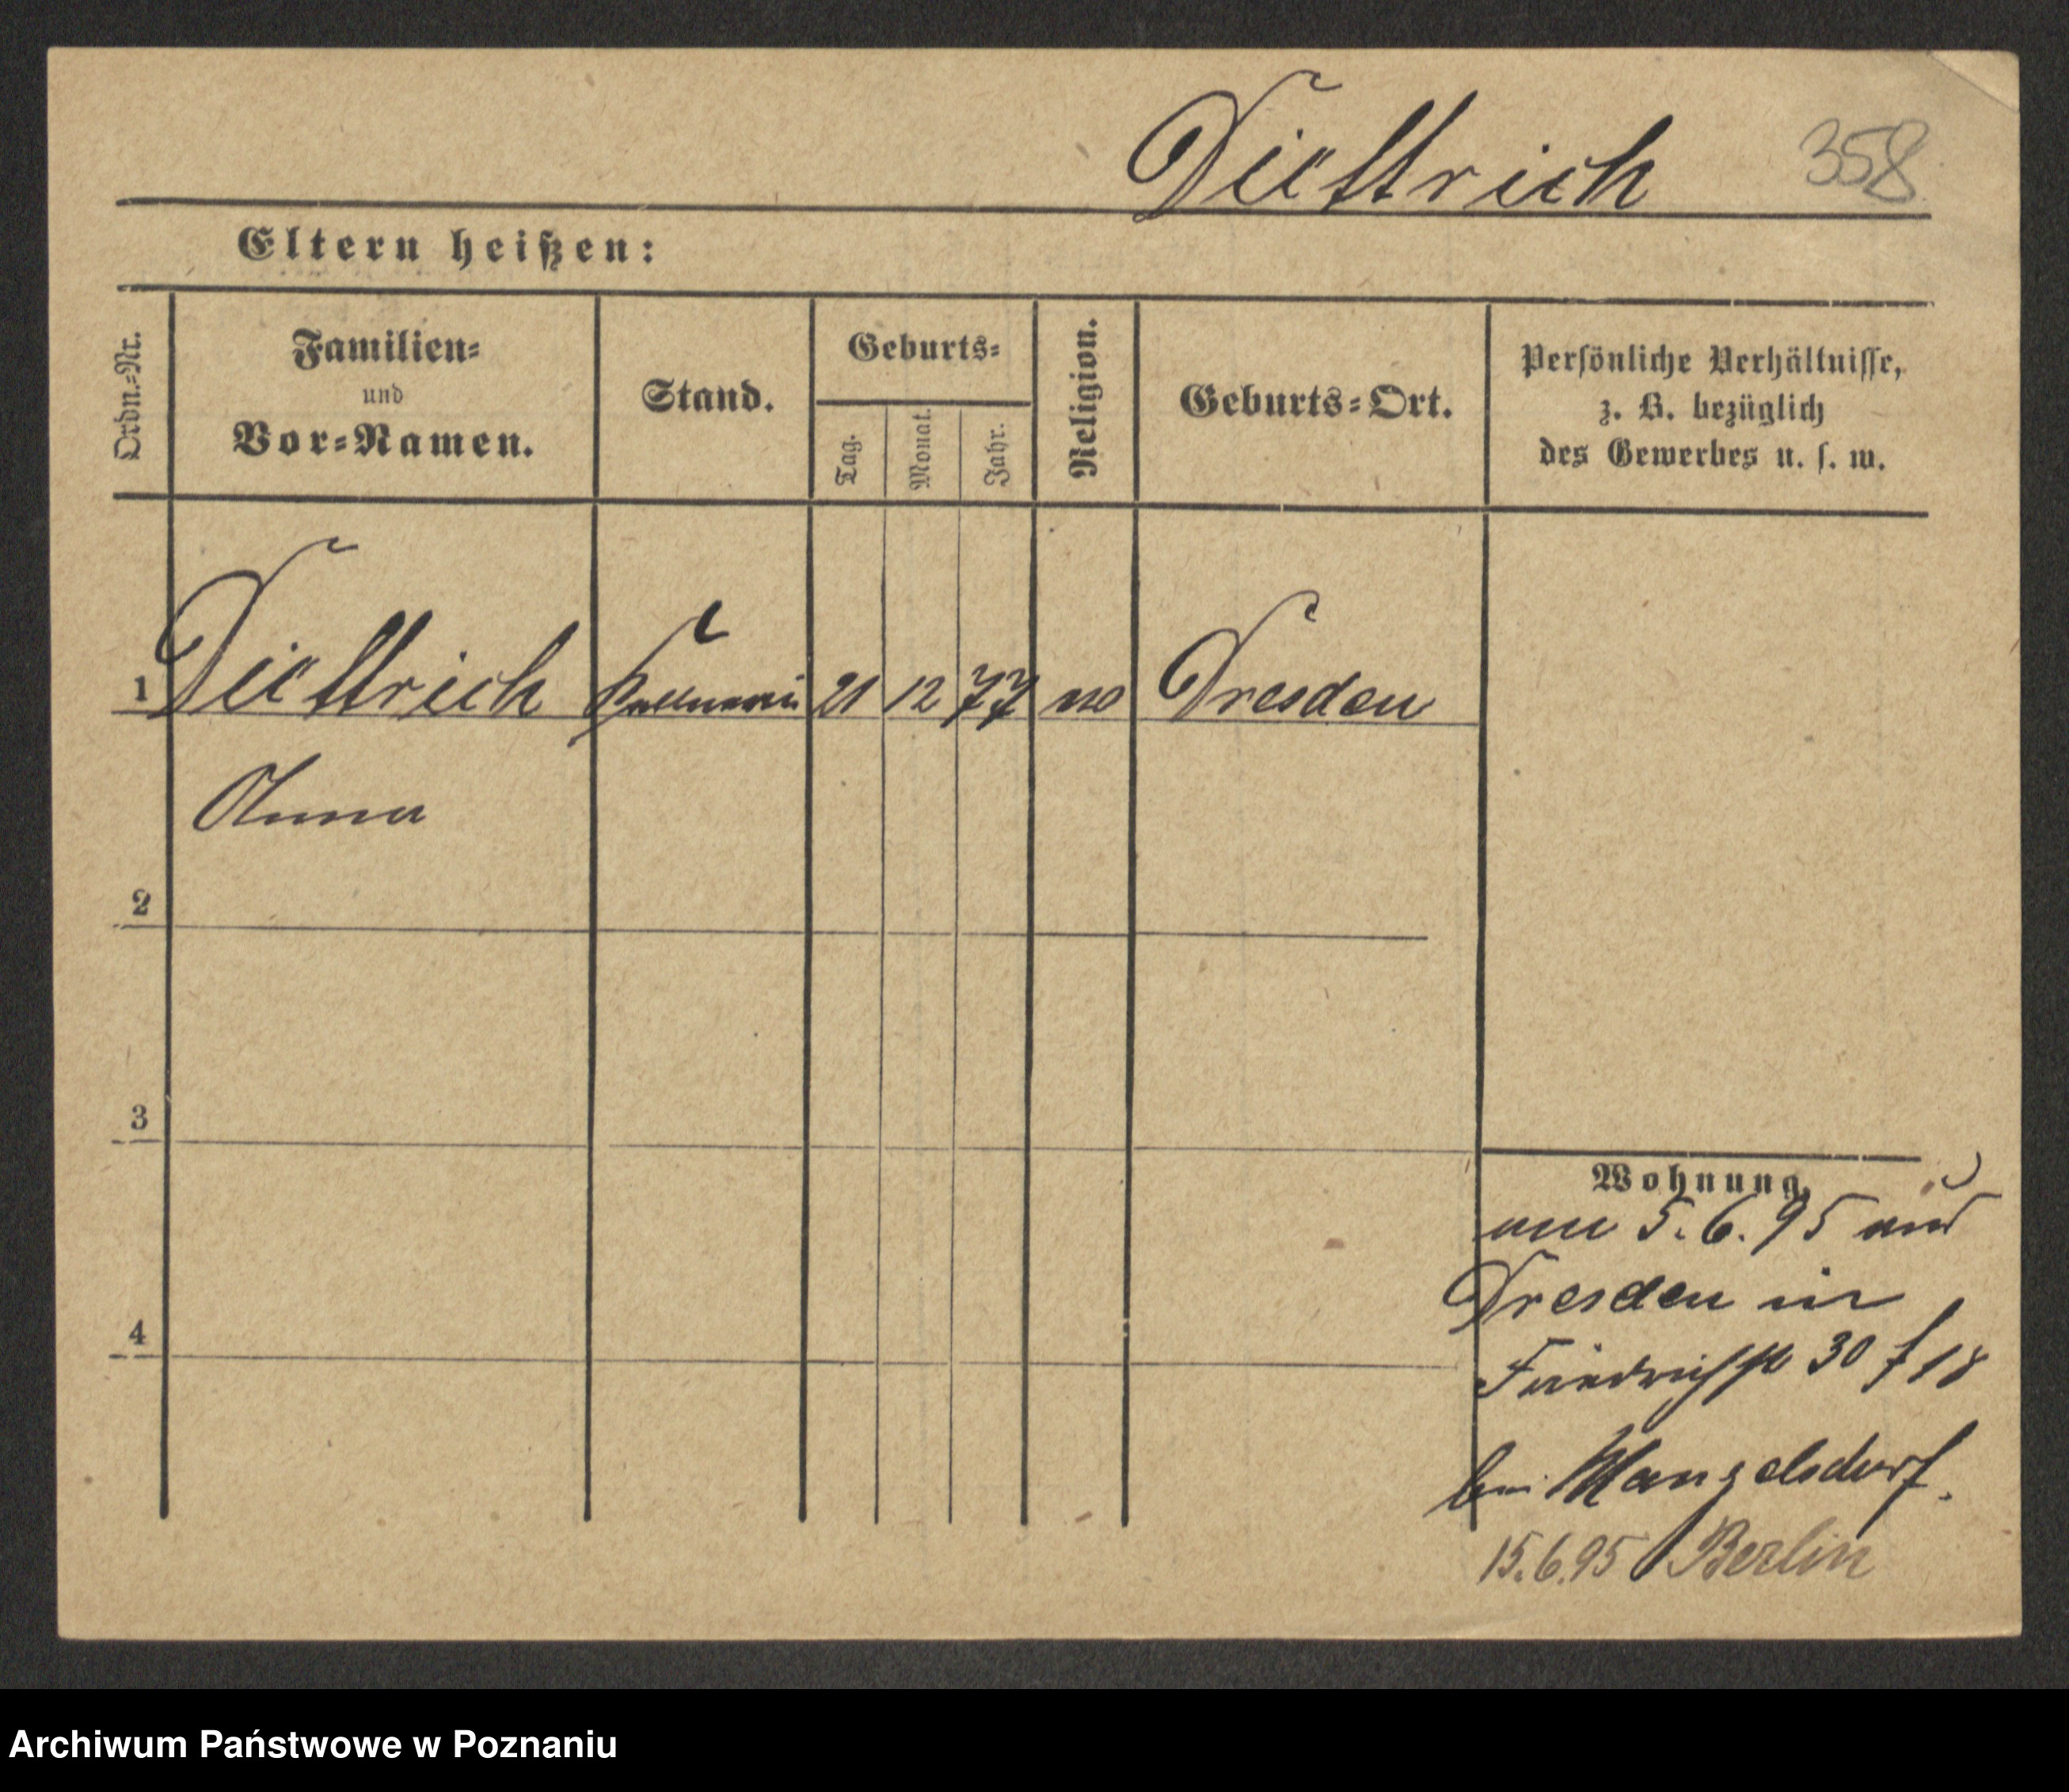 Diettrich 358
Eltern heißen:
Ordn.=Nr.
Familien=
und
Vor=Namen.
Stand.
Geburts=
Tag.
Monat.
Jahr.
Religion.
Geburts=Ort.
Persönliche Verhältnisse,
z. B. bezüglich
des Gewerbes u. s. w.
1 Diettrich Kellnerin 21 12 77 Dresden
Anna
2
3
4
Wohnung.
am 5. 6. 95 aus
Dresden in
Friedrichstr 30
bei Mangelsdorf.
15.6.95 Berlin
Archiwum Państwowe w Poznaniu